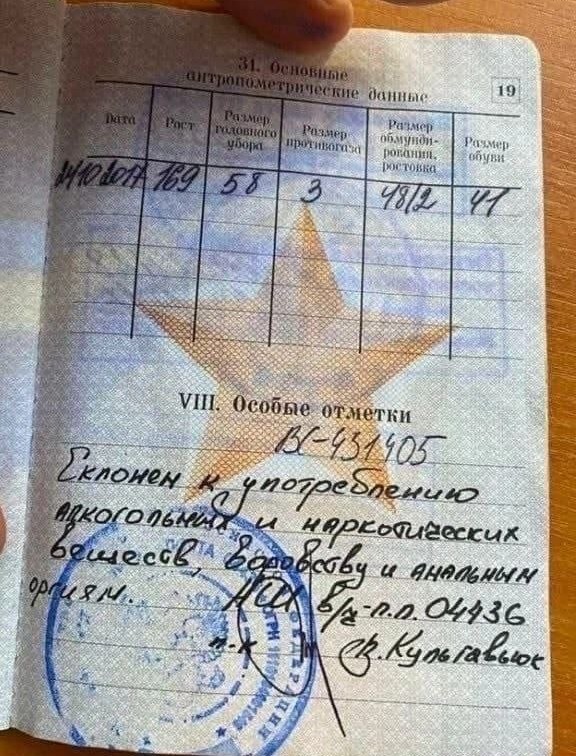 31. Основные
антропометрические данные
19
Дата
Рост
Размер
головного
убора
Размер
противогаза
Размер
обмунди-
рования,
ростовка
Размер
обуви
24/10 2017 169 58 3 48/2 41
VIII. Особые отметки
ВС-431405
Склонен к употреблению
алкогольных и наркотических
веществ, воровству и анальным
оргиям. НШ в/ч-п.п. 04436
п-к С. Кульгавьюк